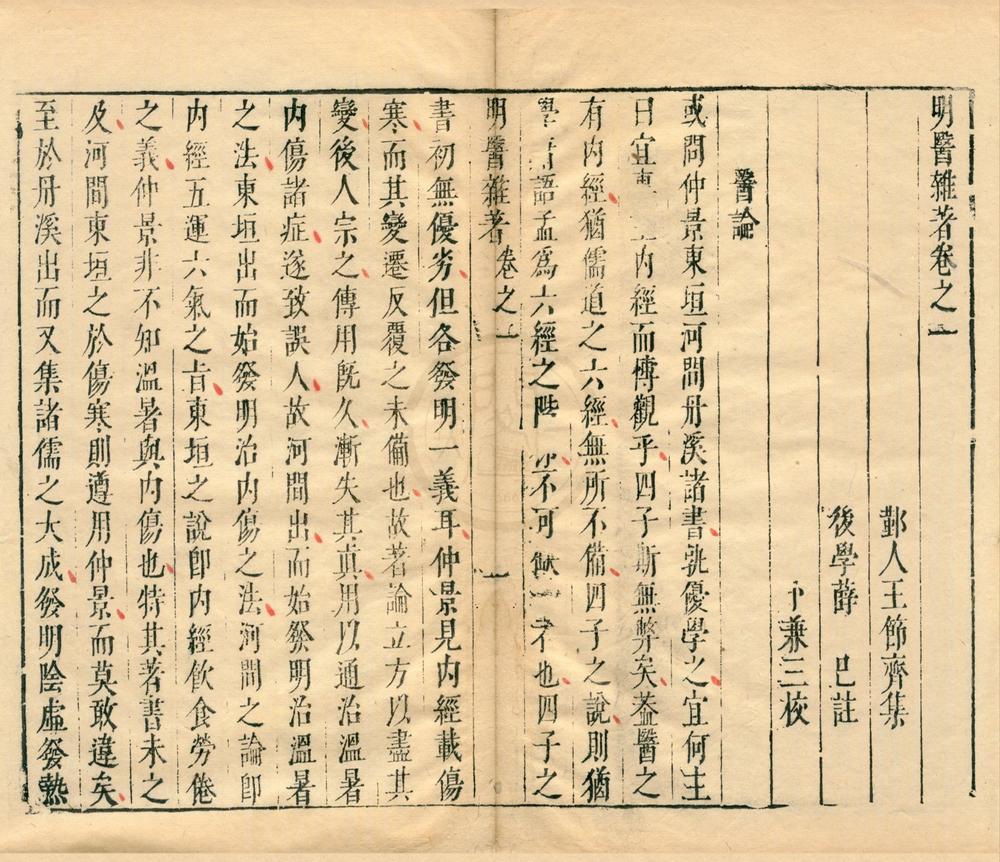 明醫雜著卷之一
鄞人王節齊集
後學薛 已註
卜兼三校
醫論
或問仲景東垣河間丹溪諸書孰優學之宜何主
曰宜 內經而博觀乎四子斯無弊矣蓋醫之
有內經猶儒道之六經無所不備四子之說則猶
學 語孟為六經之階 不可 也四子之
明醫雜著 卷之一 一
書初無優劣但各發明一義耳仲景見內經載傷
寒而其變遷反覆之未備也故著論立方以盡其
變後人宗之傳用既久漸失其真用以通治溫暑
內傷諸症遂致誤人故河間出而始發明治溫暑
之法東垣出而始發明治內傷之法河間之論即
內經五運六氣之旨東垣之說即內經飲食勞倦
之義仲景非不知溫暑與內傷也特其著書未之
及河間東垣之於傷寒則遵用仲景而莫敢違矣
至於丹溪出而又集諸儒之大成發明陰虛發熱